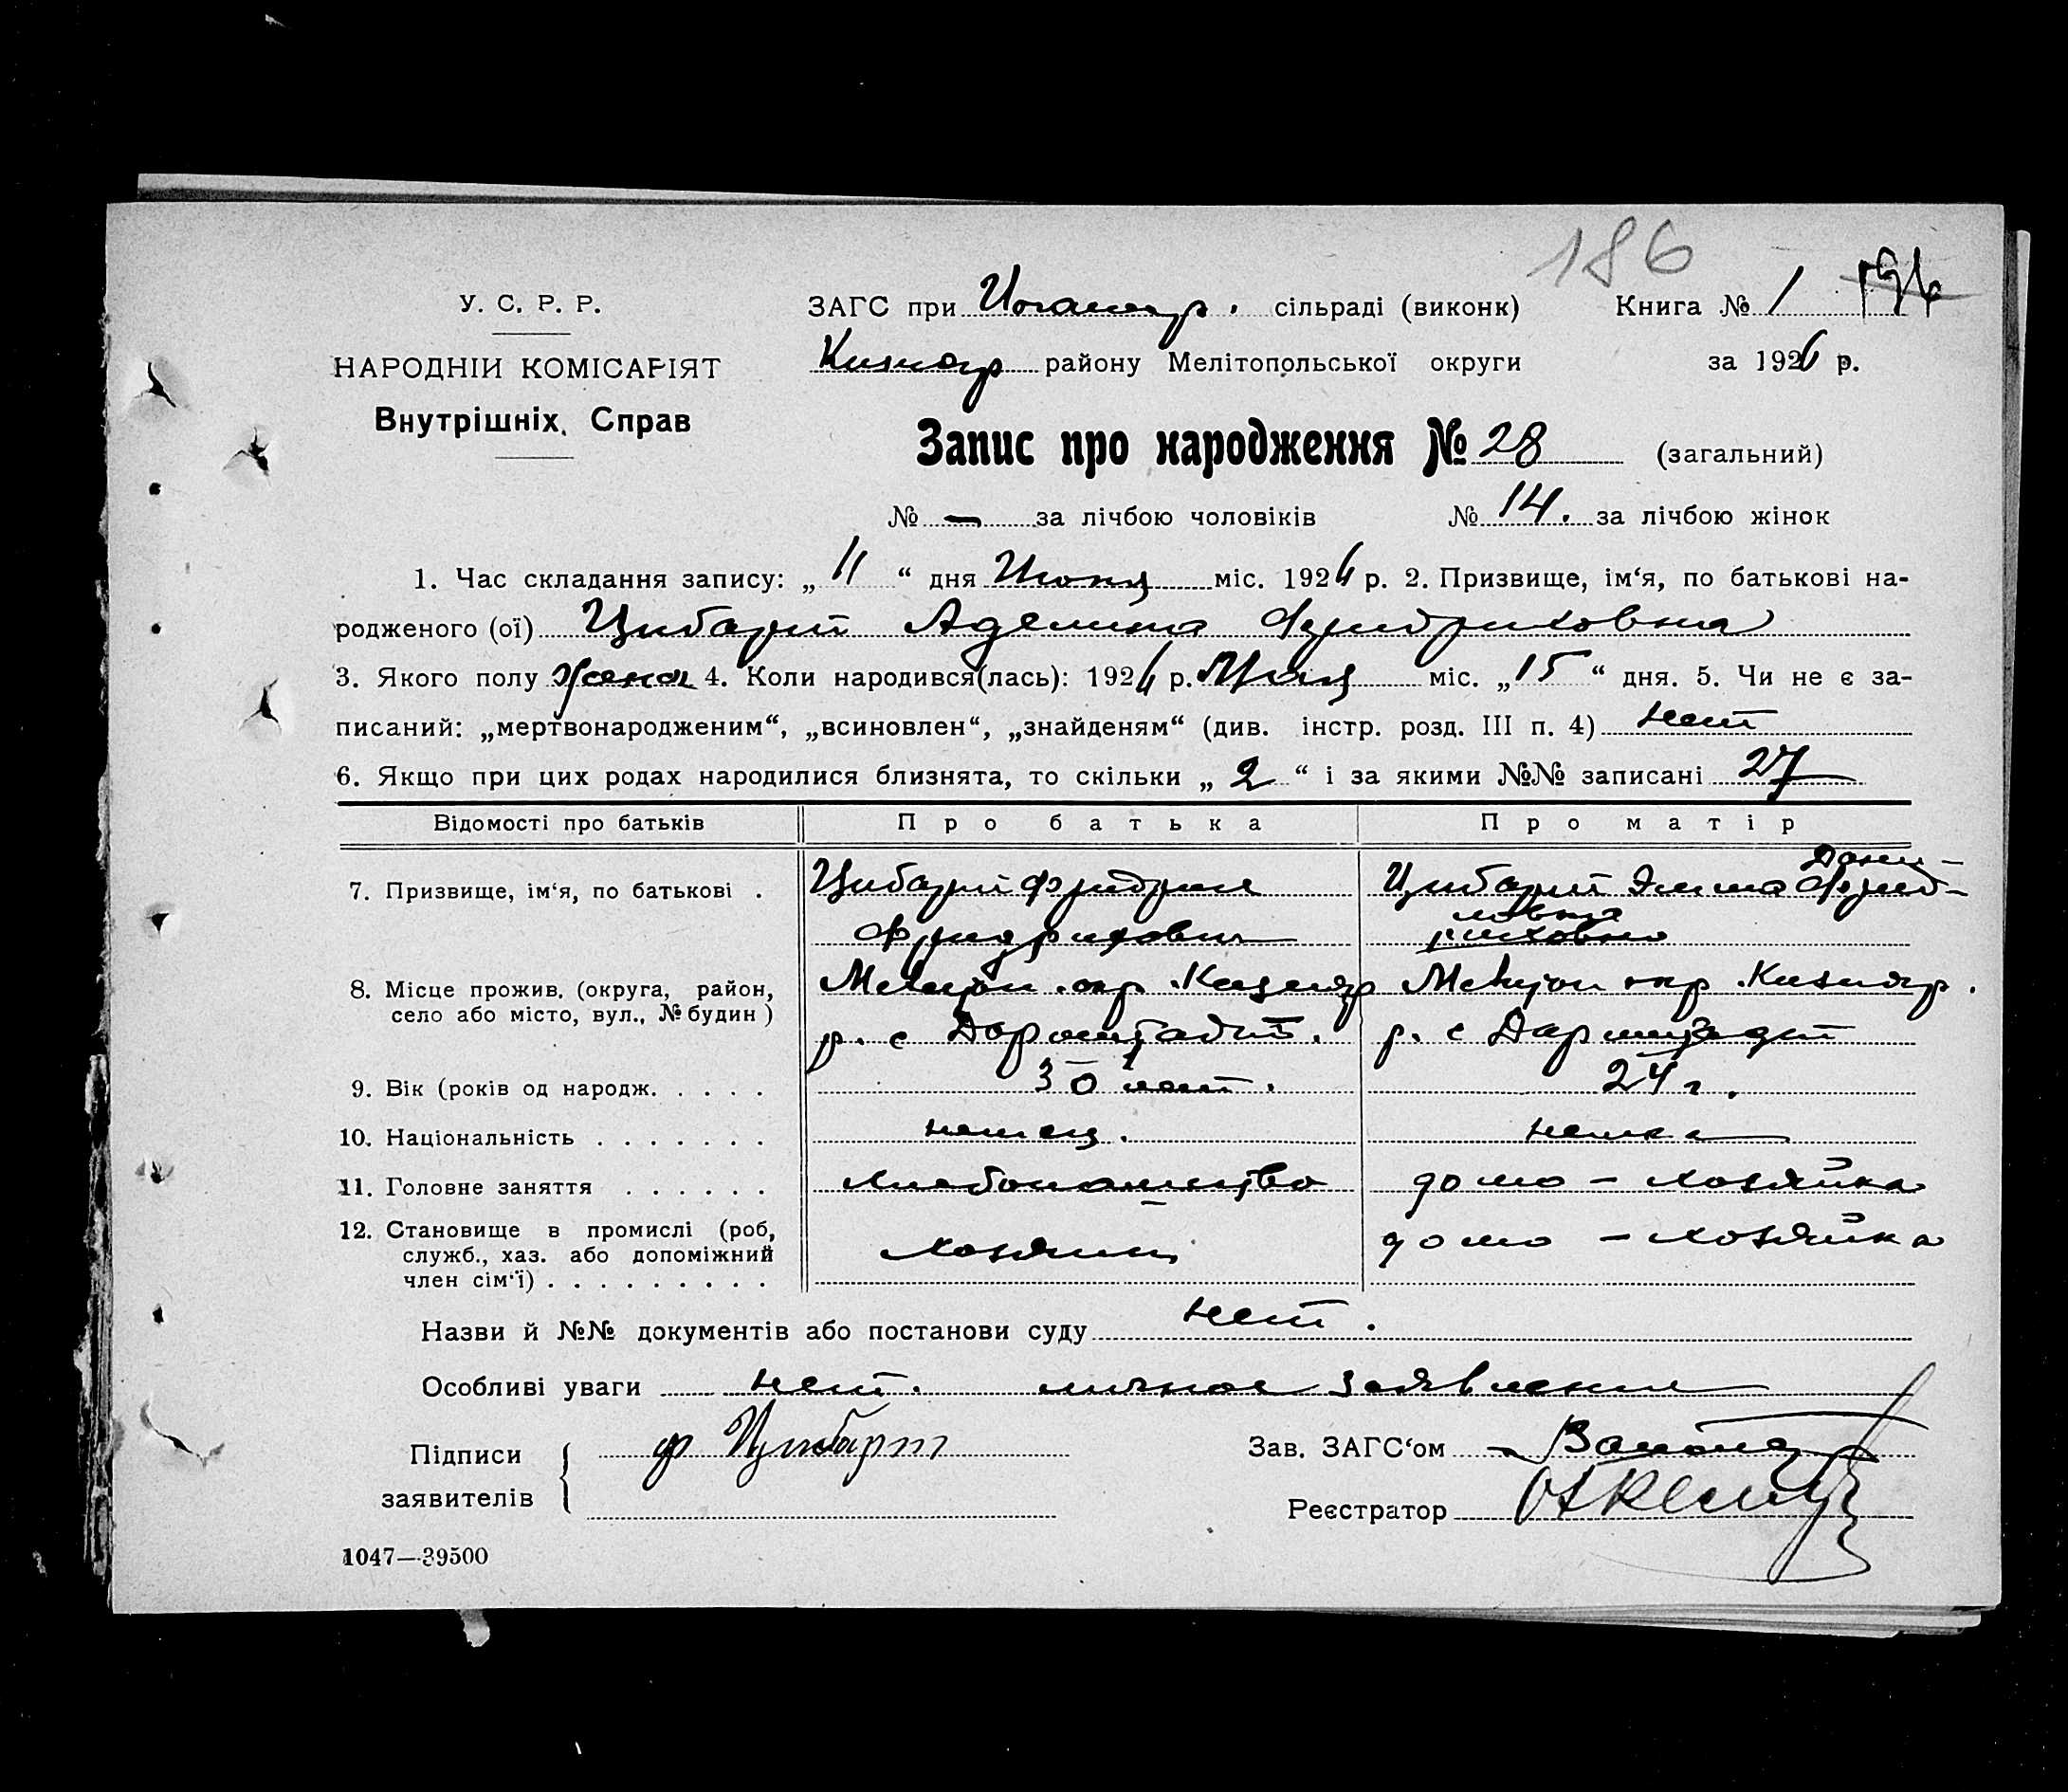 186
У. С. Р. Р.
ЗАГС при сільраді (виконк) Книга № 1 196
НАРОДНІЙ КОМІСАРІЯТ
Кизияр району Мелітопольської округи за 1926 р.
Внутрішніх Справ
Запис про народження № 28 (загальний)
№ — за лічбою чоловіків № 14. за лічбою жінок
1. Час складання запису: „ 11 “ дня міс. 1926 р. 2. Призвище, ім‘я, по батькові на-
родженого (ої) Цибарт Аделина Фридриховна
3. Якого полу жена 4. Коли народився(лась): 1926 р. міс. „ 15 “ дня. 5. Чи не є за-
писаний: „мертвонародженим“, „всиновлен“, „знайденям“ (див. інстр. розд. III п. 4) нет
6. Якщо при цих родах народилися близнята, то скільки „ 2 “ і за якими №№ записані 27
Відомості про батьків Про батька Про матір
7. Призвище, ім‘я, по батькові . Цибарт Фридрих Цибарт Эмма Фрид- Дани-
Фридрихович риховна ловна
8. Місце прожив. (округа, район, Мелитоп. окр. Кизияр Мелитоп окр. Кизияр.
село або місто, вул., № будин ) р. с Дармштадт. р. с Дармштадт
9. Вік (років од народж. . . . . 30 лет. 24 г.
10. Національність . . . . . . . немец. немка
11. Головне заняття . . . . . . хлебопашество домо - хозяйка
12. Становище в промислі (роб, хозяин домо - хозяйка
служб., хаз. або допоміжний
член сім‘ї) . . . . . . . . .
Назви й №№ документів або постанови суду нет.
Особливі уваги нет. личное заявление
Підписи ф Цибарт Зав. ЗАГС‘ом
заявителів Реєстратор
1047—39500